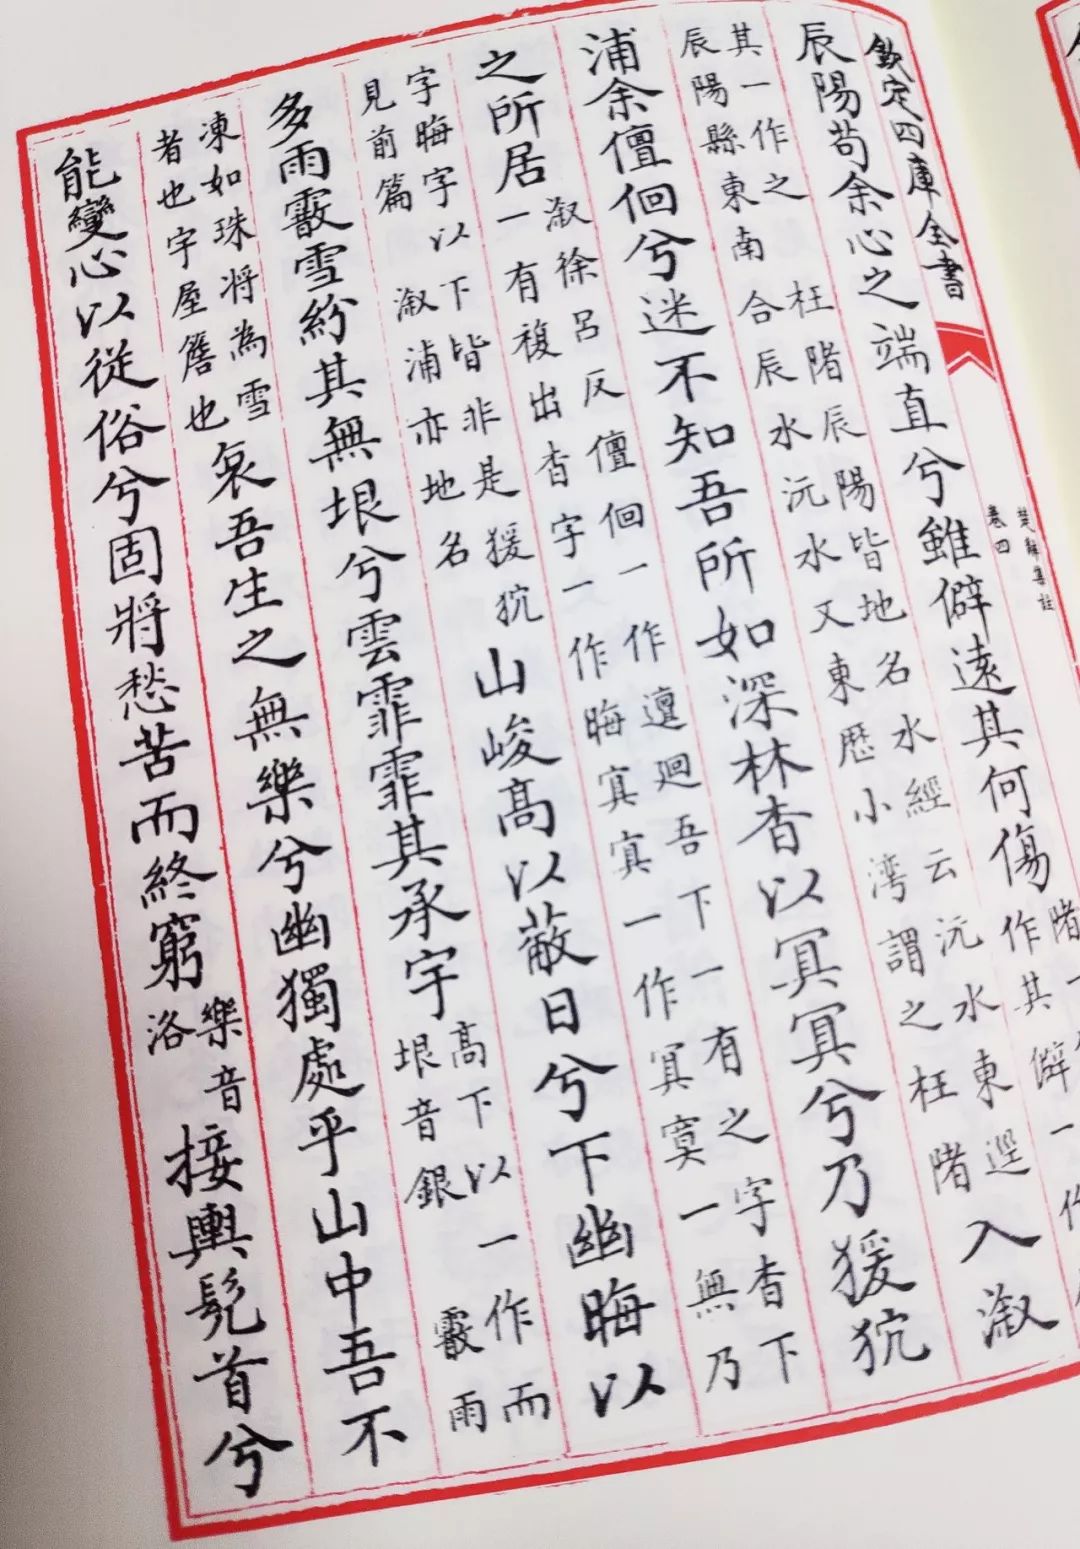 欽定四庫全書
楚辭集註
卷四
辰陽苟余心之端直兮雖僻逺其何傷
陼一
作其僻一作
其一作之枉陼辰陽皆地名水經云沅水東逕
辰陽縣東南合辰水沅水又東歴小湾謂之枉陼
入溆
浦余儃佪兮迷不知吾所如深林杳以冥冥兮乃猨狖
之所居
溆徐呂反儃佪一作邅廻吾下一有之字杳下
一有複出杳字一作晦冥冥一作冥寞一無乃
字晦字以下皆非是猨狖
見前篇溆浦亦地名
山峻髙以蔽日兮下幽晦以
多雨霰雪紛其無垠兮雲霏霏其承宇
髙下以一作而
垠音銀霰雨
凍如珠将為雪
者也宇屋簷也
哀吾生之無樂兮幽獨處乎山中吾不
能變心以從俗兮固將愁苦而終窮
樂音
洛
接輿髡首兮